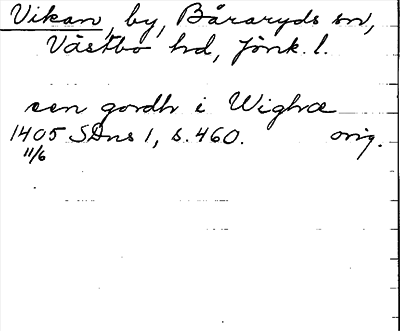 Vikan, by, Båraryds sn,
Västbo hd, Jönk. l.
een gordh i Wighæ
1405 SDns 1, s. 460. orig.
11/6